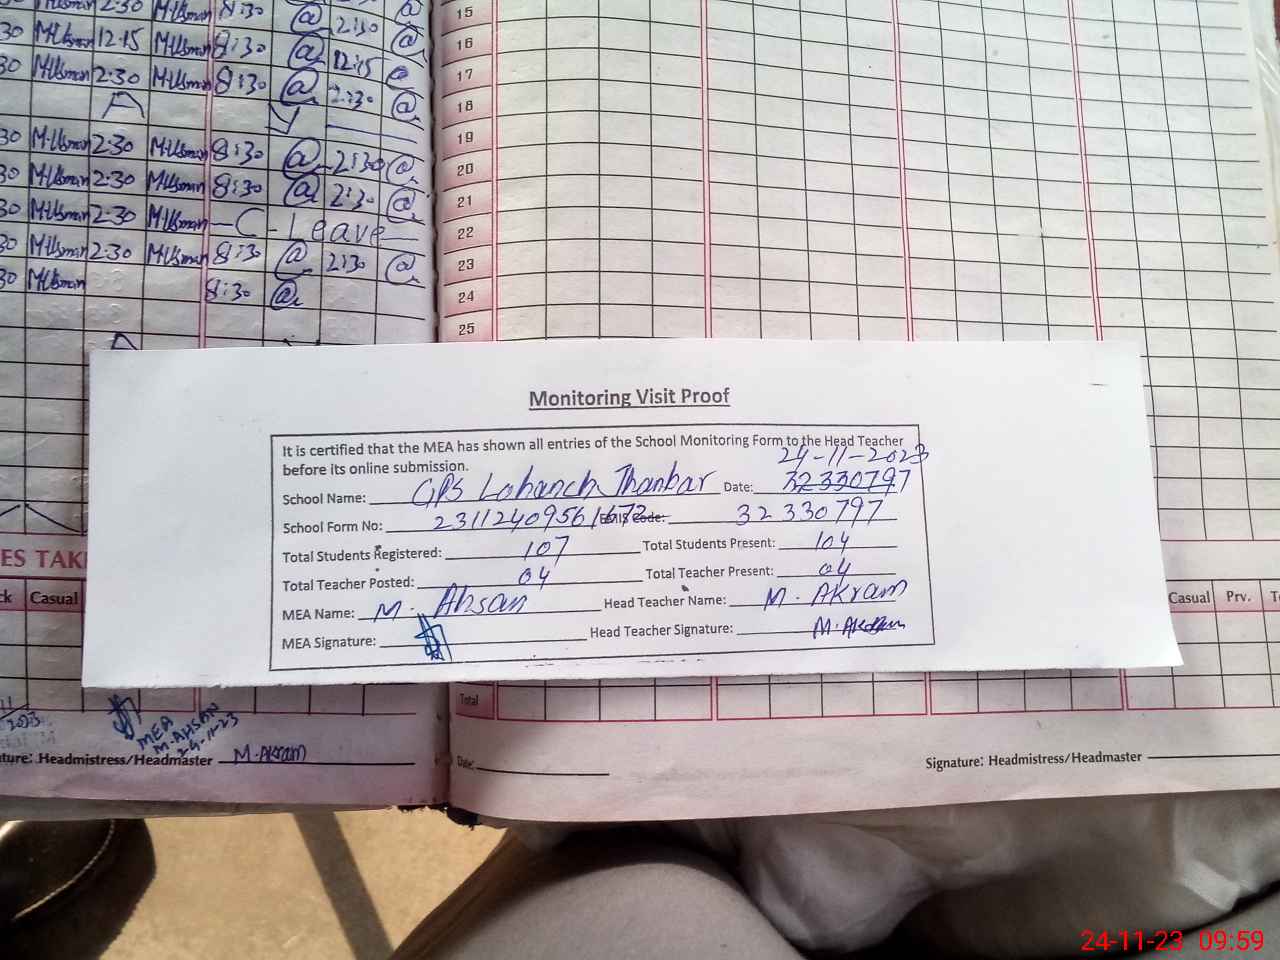 2:30 M.Usman 8:30 @ 2:30 @
30 M.Usman 12:15 M.Usman 8:30 @ 12:15 @
30 M.Usman 2:30 M.Usman 8:30 @ 2:30 @
30 M.Usman 2:30 M.Usman 8:30 @ 2:30 @
30 M.Usman 2:30 M.Usman 8:30 @ 2:30 @
30 M.Usman 2:30 M.Usman - C - Leave
30 M.Usman 2:30 M.Usman 8:30 @ 2:30 @
30 M.Usman 8:30 @
15
16
17
18
19
20
21
22
23
24
25
Monitoring Visit Proof
It is certified that the MEA has shown all entries of the School Monitoring Form to the Head Teacher
before its online submission.
24-11-2023
School Name: GPS Lohanch Thanbar Date: 32330797
School Form No: 23112409561672 Code: 32330797
Total Students Registered: 107 Total Students Present: 104
Total Teacher Posted: 04 Total Teacher Present: 04
MEA Name: M. Ahsan Head Teacher Name: M. Akram
MEA Signature: Head Teacher Signature: M. Akram
ES TAK
ck Casual
Casual Prv.
Total
2023
MEA
M. AHSAN
24-11-23
ture: Headmistress/Headmaster M. Akram
Date:
Signature: Headmistress/Headmaster
24-11-23 09:59